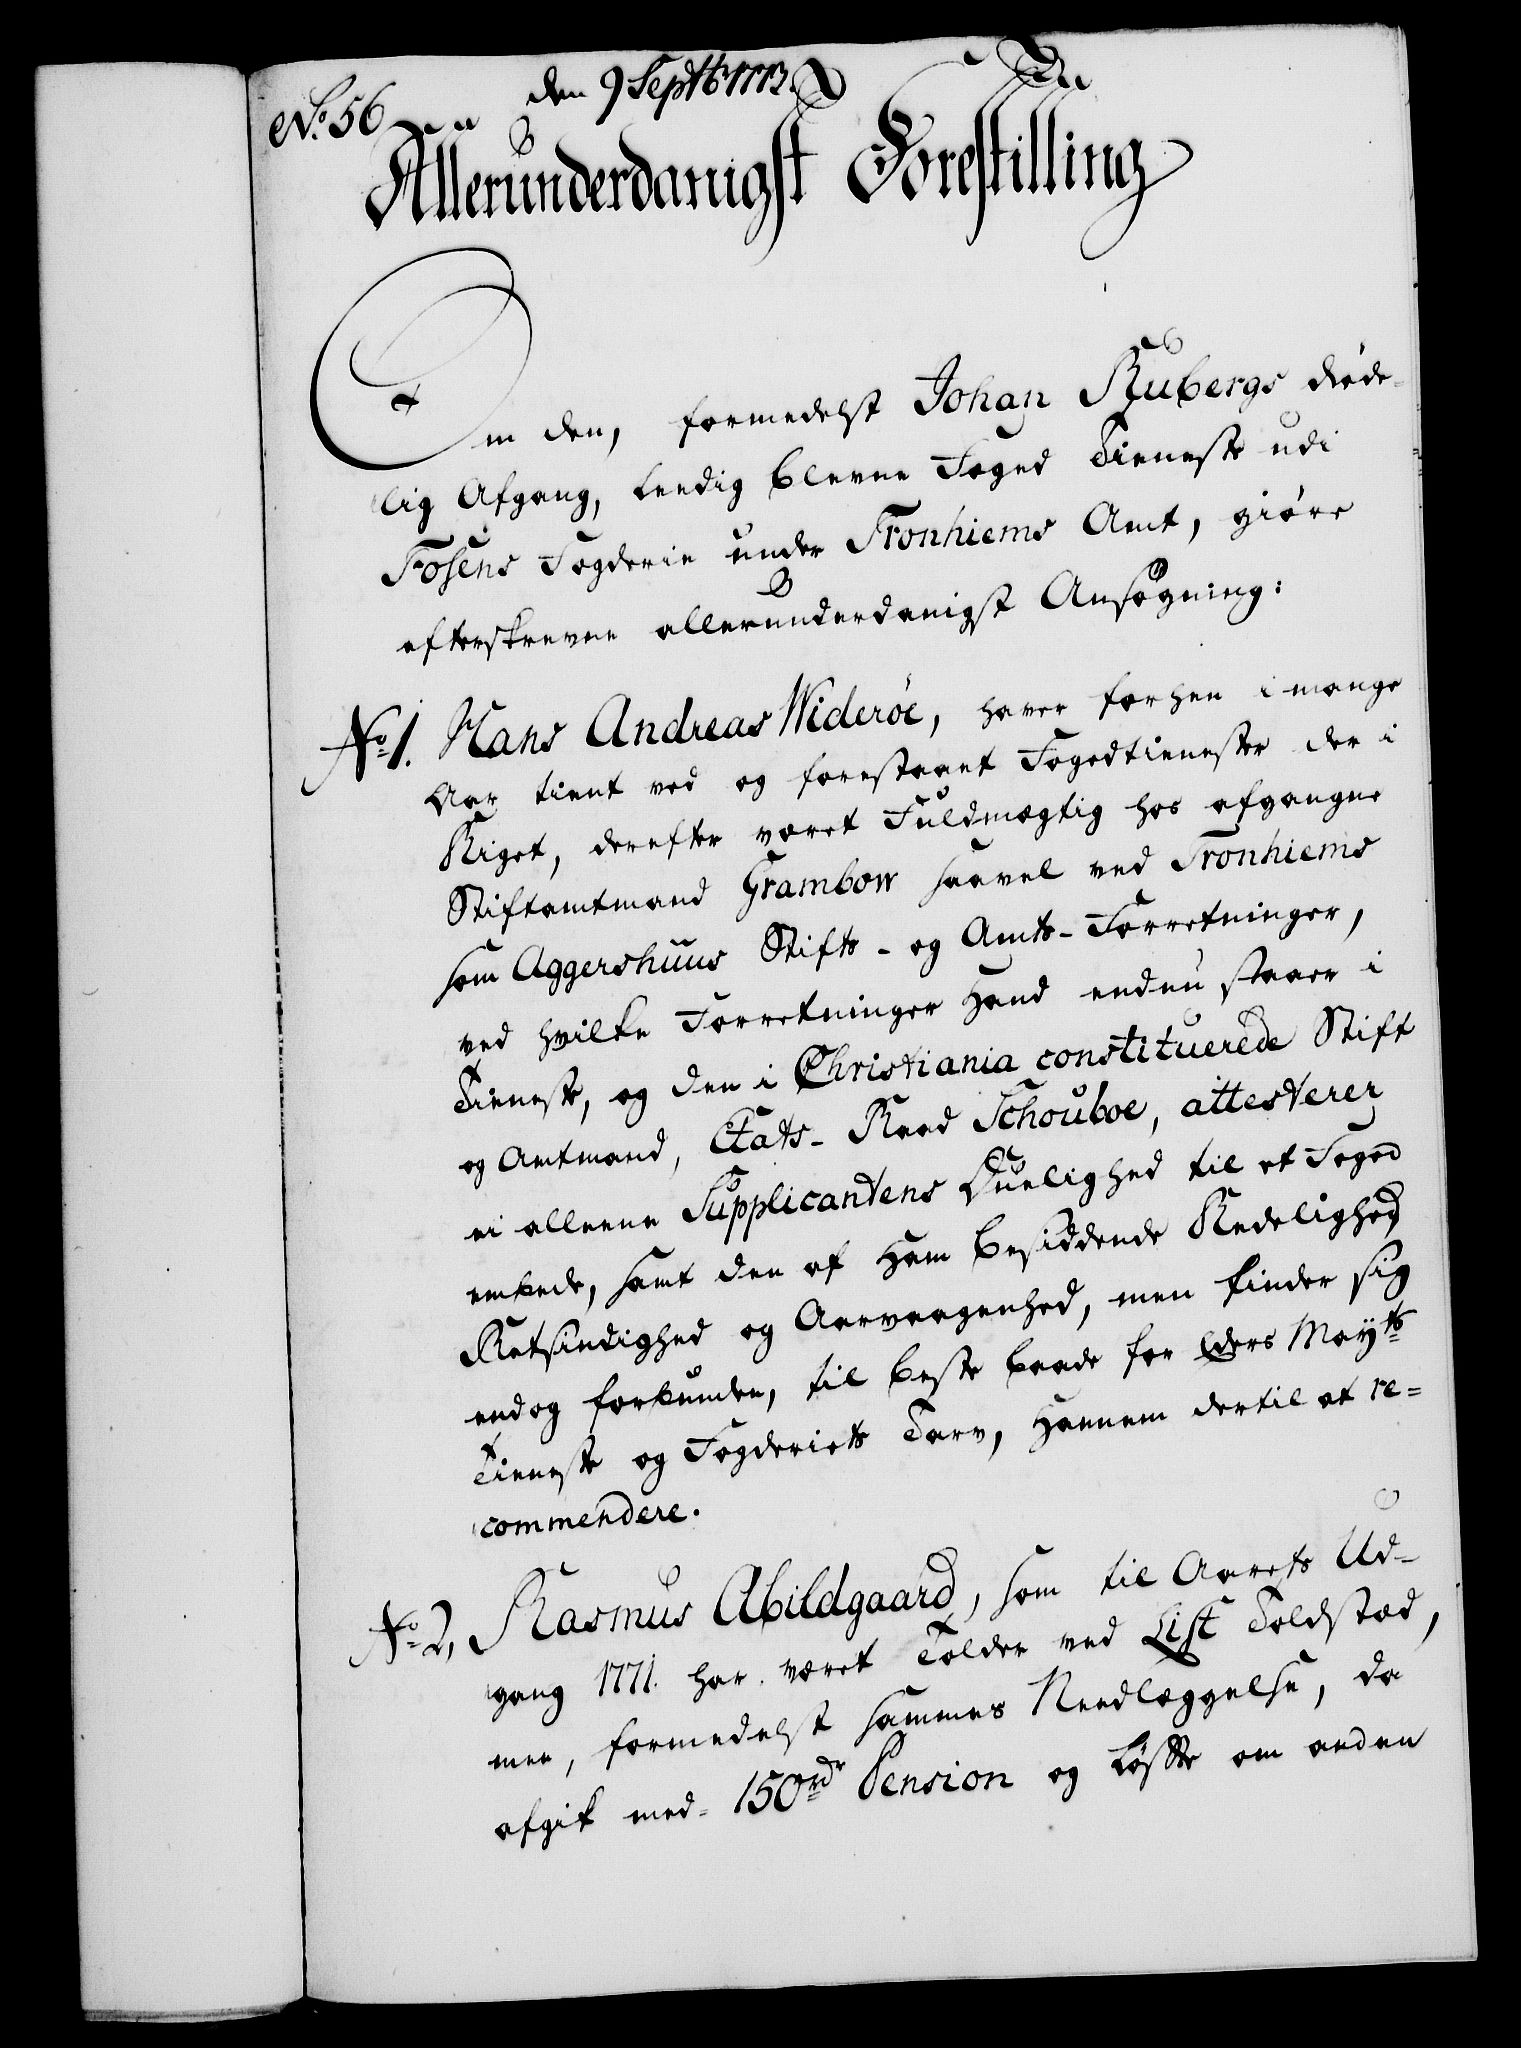 No. 56
den 9 Septbr 1773.
Allerunderdanigst Forestilling
Om den, formedelst Johan Rubergs döde-
lig Afgang, leedig blevne Foged Tieneste udi
Fosens Fogderie under Tronhiems Amt, giöre
efterskrevne allerunderdanigst Ansøgning:
No. 1. Hans Andreas Wideröe, haver forhen i mange
Aar tient ved og forestaaet Fogedtienester der i
Riget, derefter været Fuldmægtig hos afgangne
Stiftamtmand Grambow saavel ved Tronhiems
som Aggershuus Stifts- og Amts-Forretninger,
ved hvilke Forretninger Hand endnu staaer i
Tieneste, og den i Christiania constituerede Stift
og Amtmand, Etats-Raad Schouboe, attesterer
ei alleene Supplicantens Duelighed til et Foged
embede, samt den af Ham besiddende Redelighed
Retsindighed og Aarvaagenhed, men finder sig
endog forbunden, til beste baade for Eders Mayts
Tieneste og Fogderiets Tarv, Hannem dertil at re-
commendere.
No. 2, Rasmus Abildgaard, som til Aarets Ud-
gang 1771. har været Tolder ved List Toldstæd,
men, formedelst sammes Needlæggelse, da
afgik med 150rdr Pension og Løfte om anden